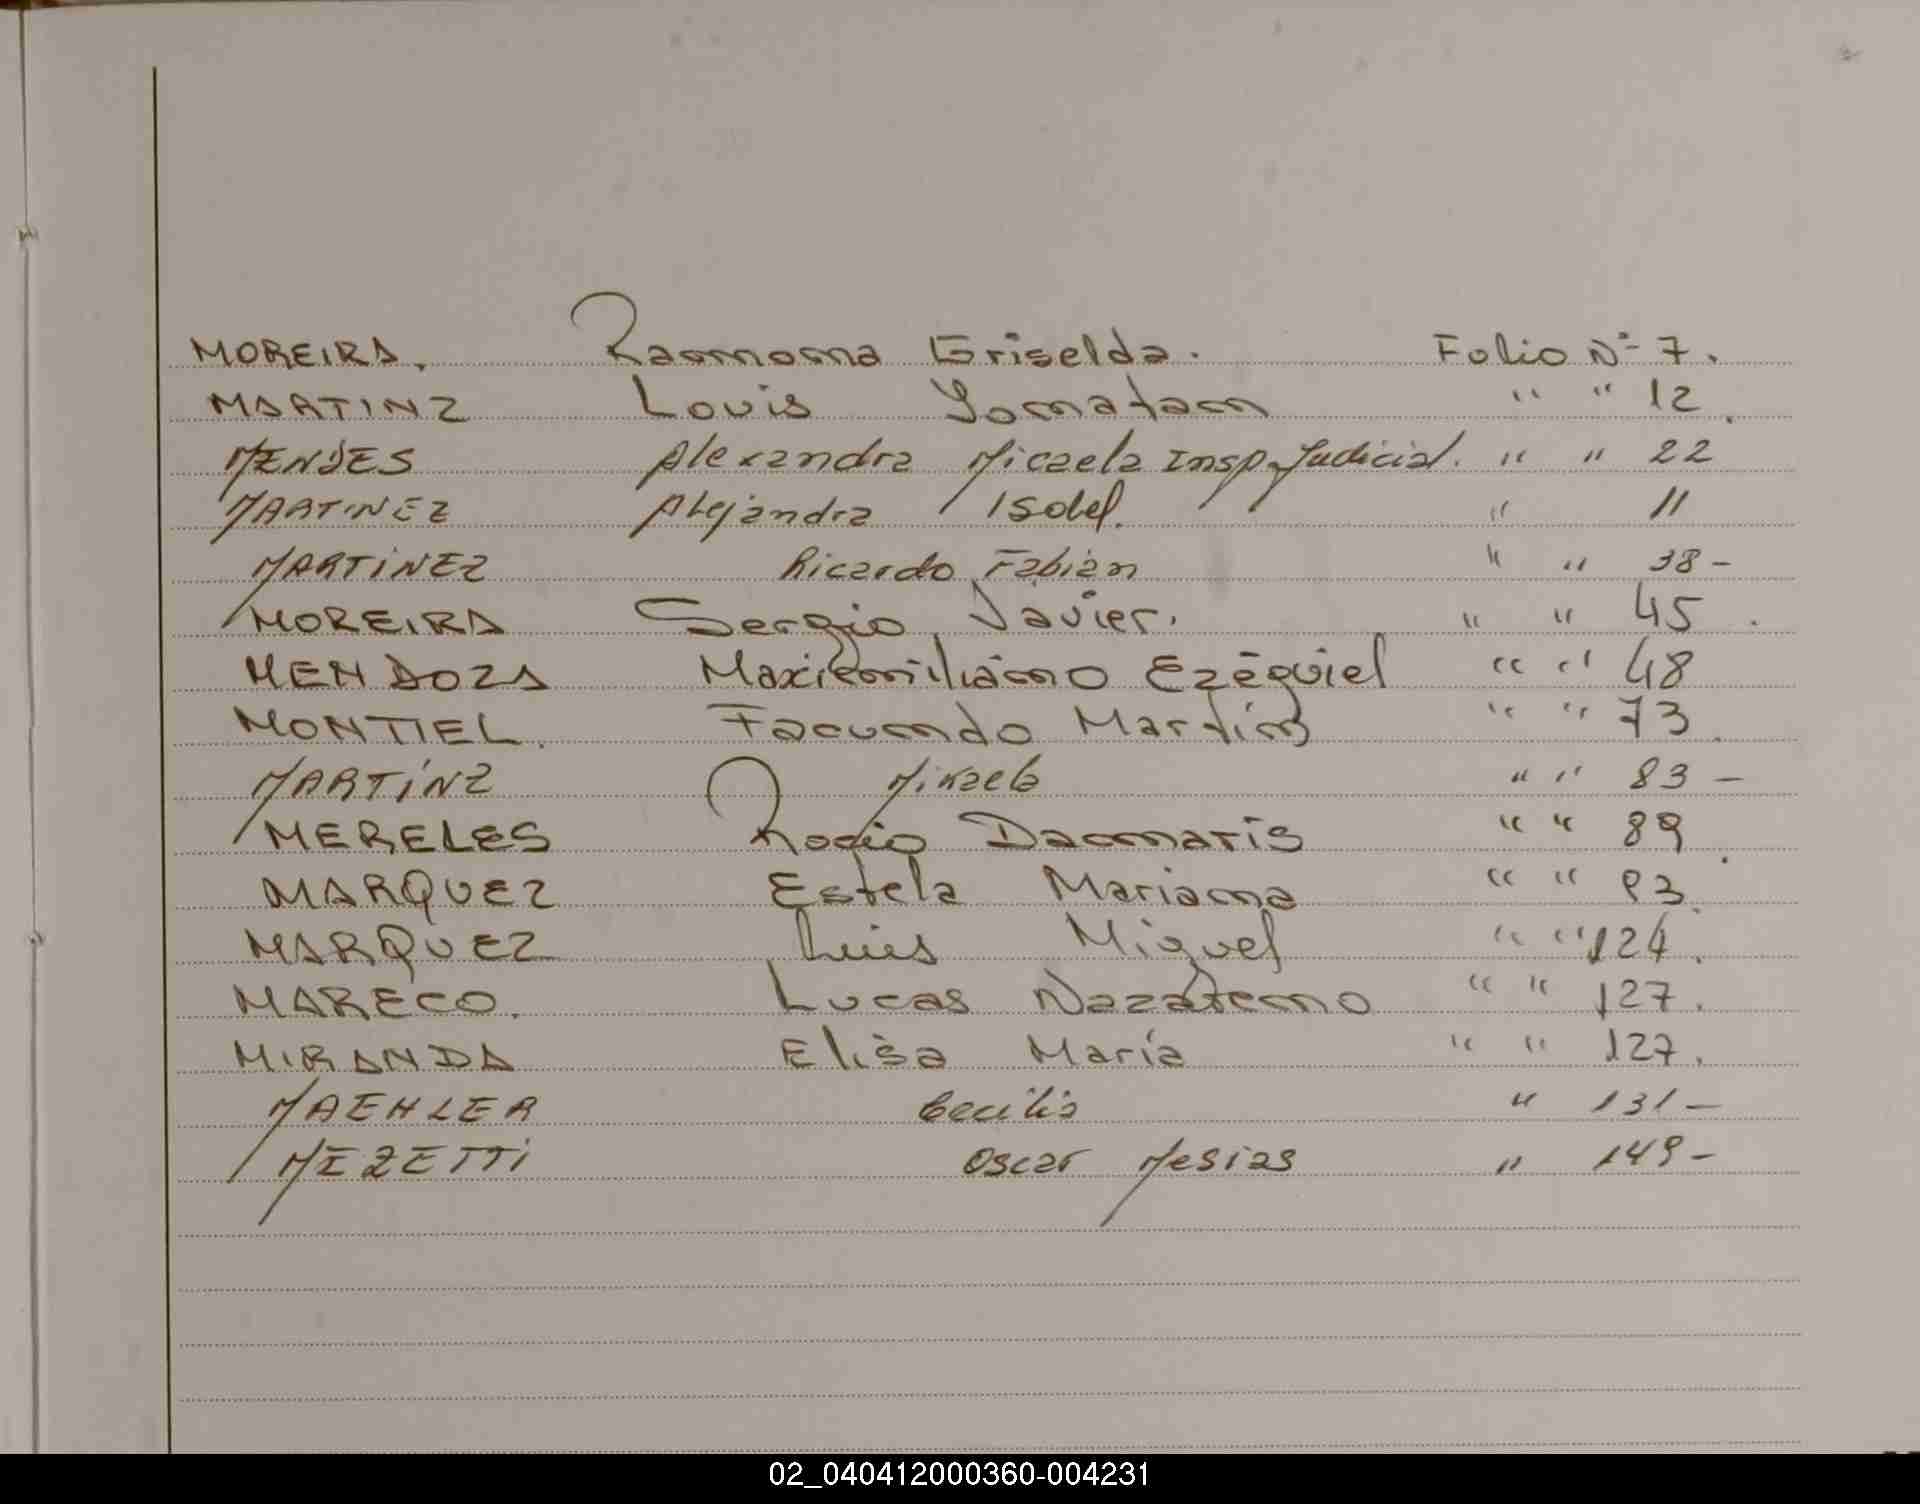 MOREIRA. Ramona Griselda. Folio Nº 7.
MARTINZ Louis Yonatan " " 12.
MENDES Alexandra Micaela Insp. Judicial. " " 22
MARTINEZ Alejandra Isabel. " 11
MARTINEZ Ricardo Fabian " " 38 -
MOREIRA Sergio Javier. " " 45.
MENDOZA Maximiliano Ezequiel " " 48
MONTIEL. Facundo Martin " " 73.
MARTINZ Mikaela " " 83 -
MERELES Rocio Damaris " " 89.
MARQUEZ Estela Mariana " " 93.
MARQUEZ Luis Miguel " " 124.
MARECO. Lucas Nazareno " " 127.
MIRANDA Elisa María " " 127.
MAEHLER Cecilia " 131 -
MEZETTI Oscar Mesias " 149 -
02_040412000360-004231